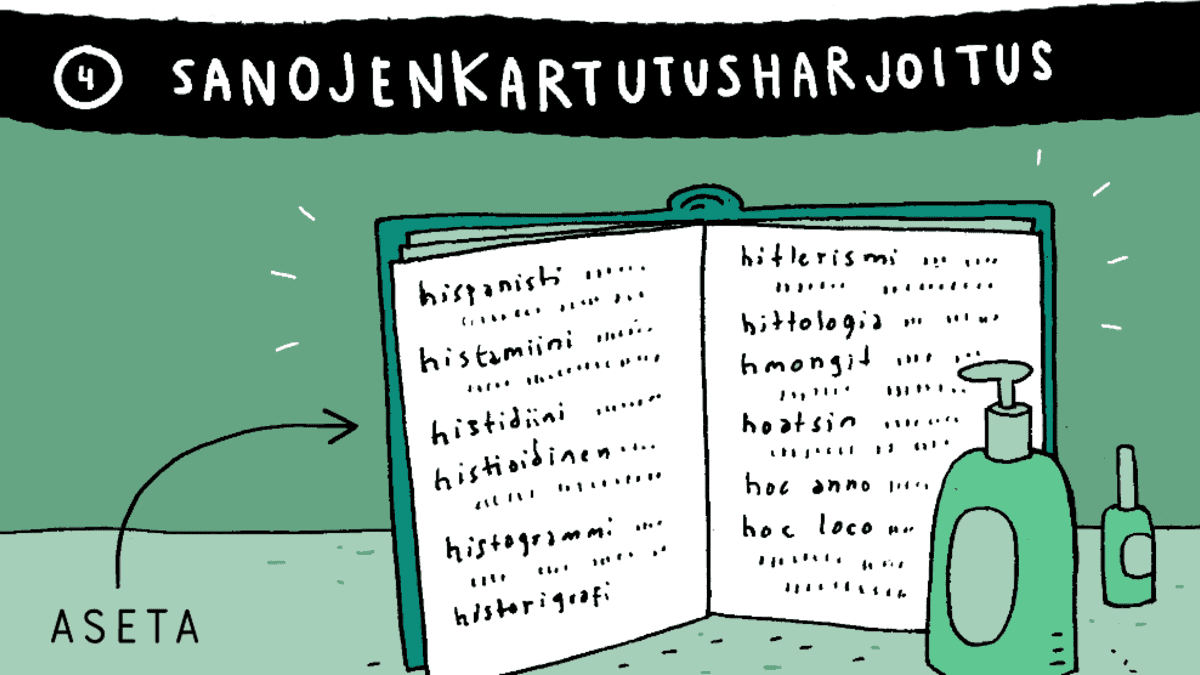 4 SANOJENKARTUTUSHARJOITUS
hispanisti
histamiini
histidiini
histioidinen
histogrammi
historigrafi
hitlerismi
hittologia
hmongit
hoatsin
hoc anno
hoc loco
ASETA